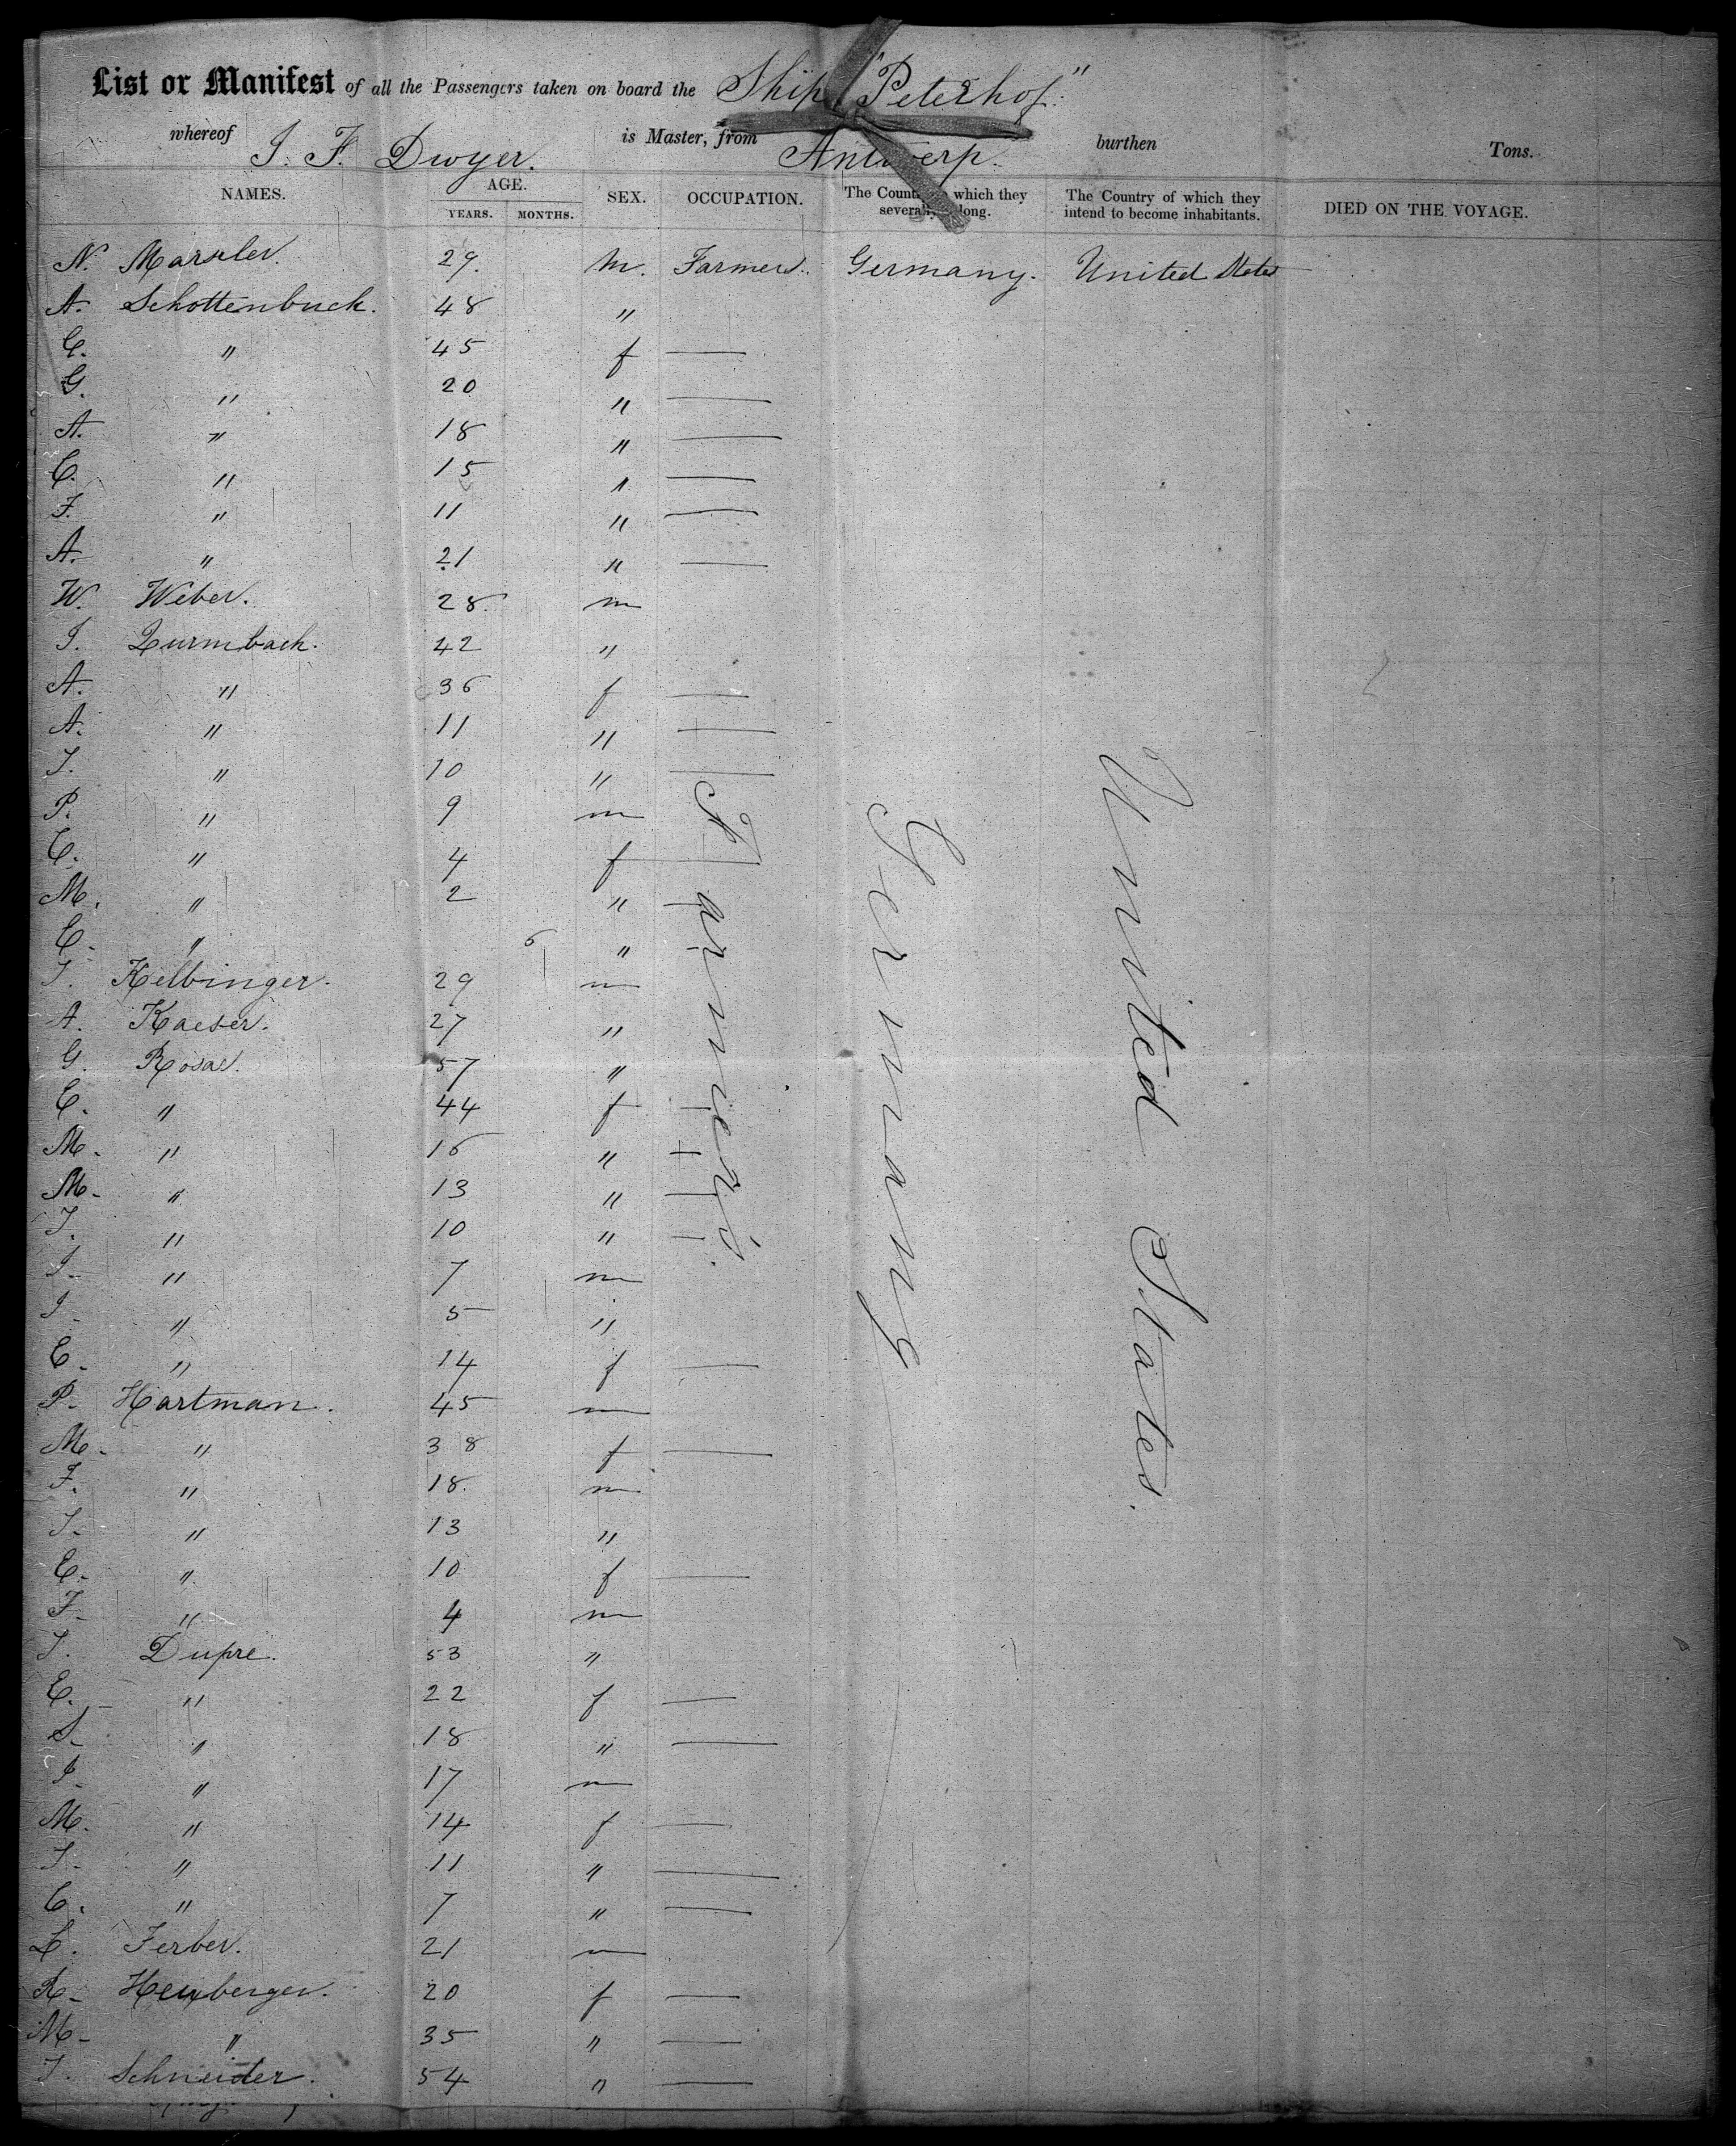 List or Manifest of all the Passengers taken on board the Ship "Peterhof"
whereof J. F. Dwyer. is Master, from Antwerp. burthen Tons.
NAMES. AGE. YEARS. MONTHS. SEX. OCCUPATION. The Country which they severally belong. The Country of which they intend to become inhabitants. DIED ON THE VOYAGE.
N. 29. m. Farmer. Germany. United States
A. Schottenbuck. 48 "
C. " 45 f —
G. " 20 " —
A. " 18 " —
C. " 15 " —
F. " 11 " —
A. " 21 " —
W. Weber. 28. m
J. Zurmbach. 42 "
A. " 36 f —
A. " 11 " —
J. " 10 " —
P. " 9 m
C. " 4 f —
M. " 2 " —
C. " 6 " —
J. Helbinger. 29 m
A. Kaeser. 27 "
G. Rosar. 57 "
C. " 44 f —
M. " 16 " —
M. " 13 " —
J. " 10 " —
J. " 7 m
J. " 5 "
C. " 14 f —
P. Hartman. 45 m
M. " 38 f —
F. " 18. m
J. " 13 "
C. " 10 f —
F. " 4 m
J. Dupre. 53 "
C. " 22 f —
S. " 18 " —
J. " 17 m
M. " 14 f —
J. " 11 " —
C. " 7 " —
L. Ferber. 21 m
R. Heuberger. 20 f —
M. " 35 " —
J. Schneider. 54 " —
Farmers.
Germany
United States.